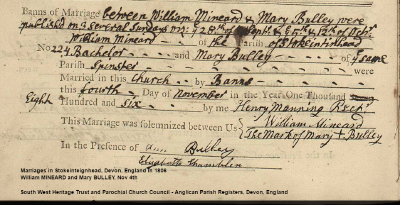 Banns of Marriage between William Mineard & Mary Bulley were
published on 3 several Sundays viz. 28th of Sept & 5th & 12th of Octr
William Mineard of the Parish
of Stokeinteignhead
No 224 Bachelor and Mary Bulley of the same
Parish Spinster were
Married in this Church by Banns
this fourth Day of November in the Year One Thousand
Eight Hundred and Six by me Henry Manning Rectr
This Marriage was solemnized between Us William Mineard
The Mark of Mary + Bulley
In the Presence of Ann Bulley
Elizabeth
Marriages in Stokeinteignhead, Devon, England in 1806
William MINEARD and Mary BULLEY, Nov 4th
South West Heritage Trust and Parochial Church Council - Anglican Parish Registers, Devon, England